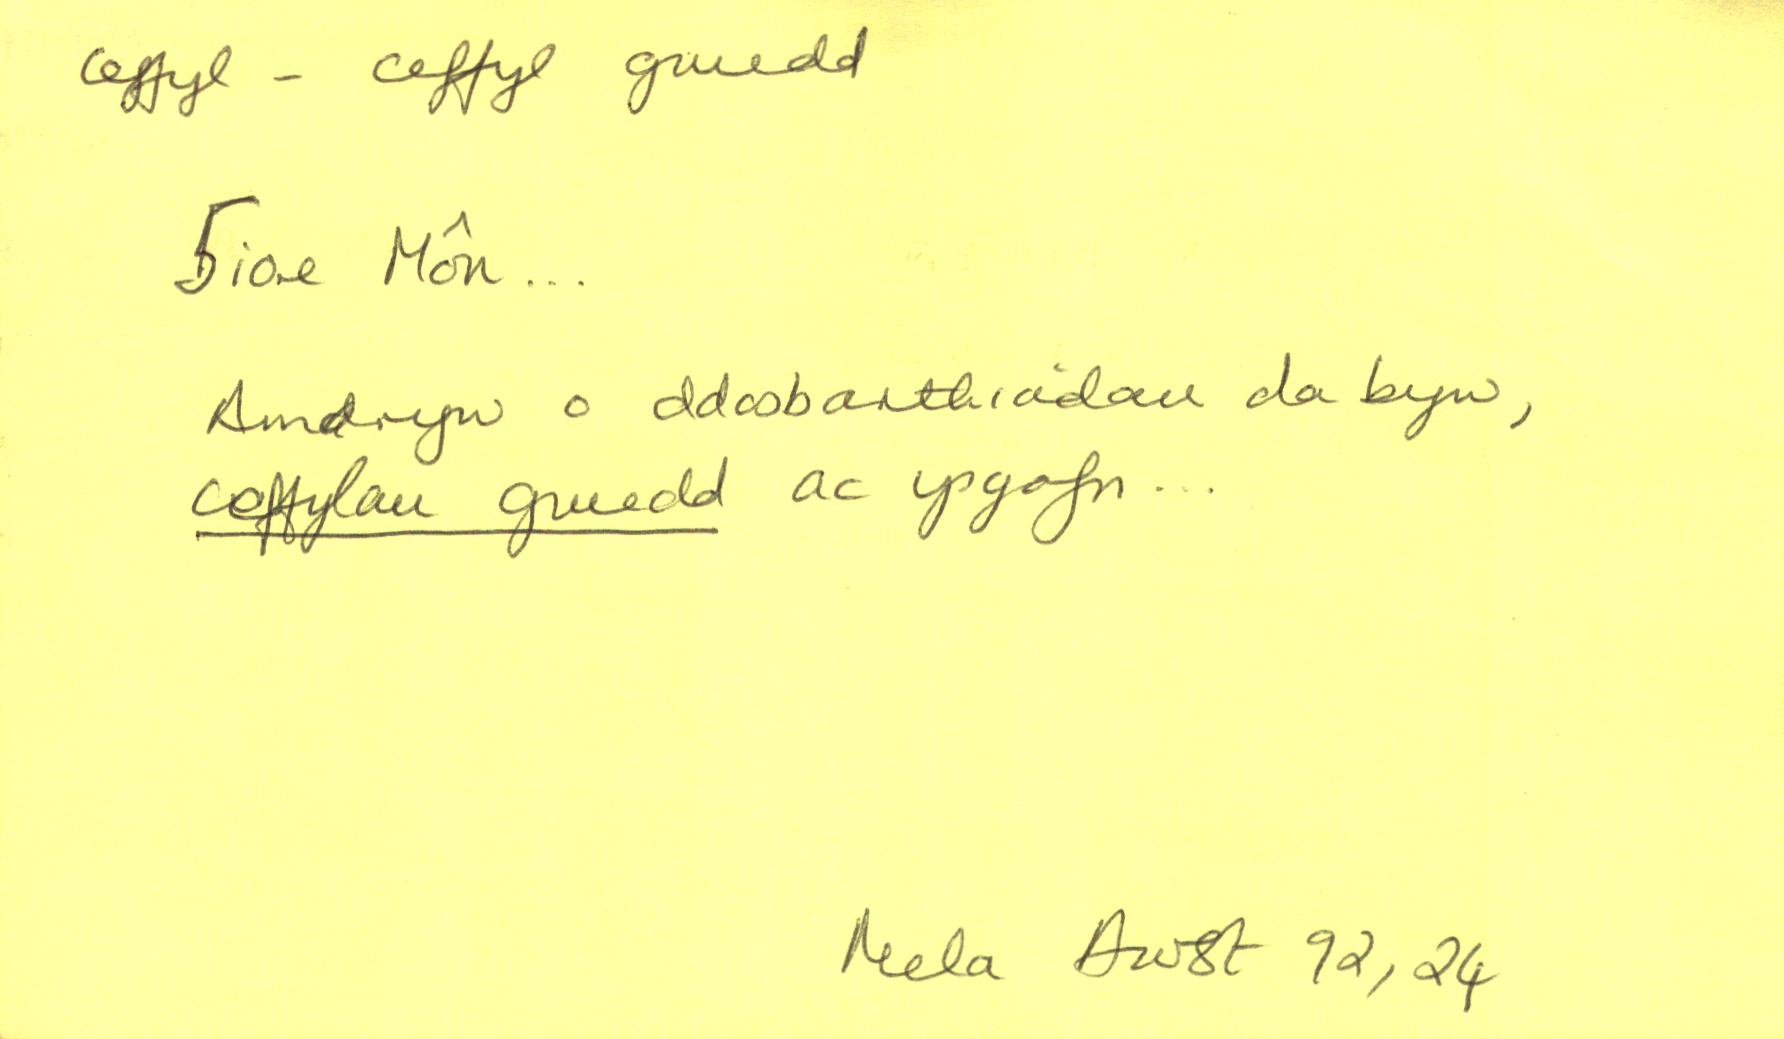 ceffyl - ceffyl gwedd
Sioe Môn...
Amdryw o ddosbarthiadau da byw,
ceffylau gwedd ac ysgafn...
Mela Awst 92, 24